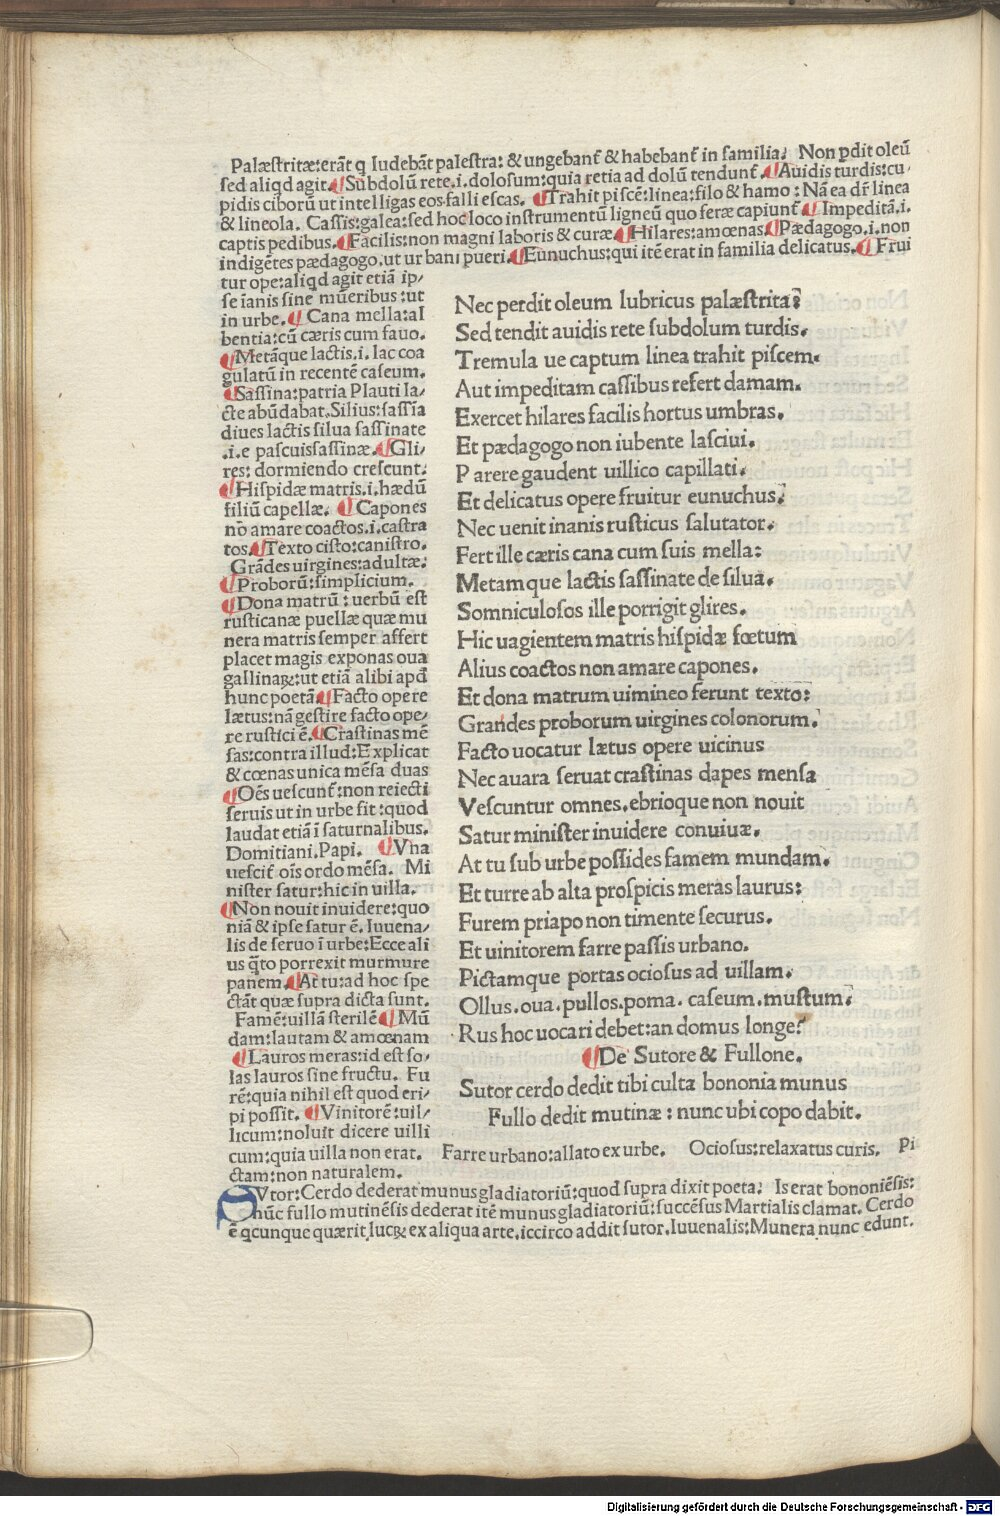 Palæstritæ:erãt q ludebãt palestra: & ungebanť & habebanť in familia. Non pdit oleũ
sed aliqd agit. ¶ Subdolũ rete.i.dolosum:quia retia ad dolũ tendunť. ¶ Auidis turdis:cu-
pidis ciborũ ut intelligas eos falli escas. ¶ Trahit piscẽ:linea:filo & hamo: Nã ea dr̃ linea
& lineola. Cassis:galea:sed hoc loco instrumentũ ligneũ quo feræ capiunť. ¶ Impeditã.i.
captis pedibus. ¶ Facilis:non magni laboris & curæ. ¶ Hilares:amœnas. ¶ Pædagogo.i.non
indigẽtes pædagogo,ut urbani pueri. ¶ Eunuchus:qui itẽ erat in familia delicatus. ¶ Frui
tur ope:aliqd agit etiã ip/
se ianis sine mũeribus:ut
in urbe. ¶ Cana mella:al
bentia:cũ cæris cum fauo.
¶ Metãque lactis.i.lac coa
gulatũ in recentẽ caseum.
¶ Sassina:patria Plauti la/
cte abũdabat.Silius:sassia
diues lactis silua sassinate
.i.e pascuis sassinæ. ¶ Gli/
res: dormiendo crescunt.
¶ Hispidæ matris.i.hædũ
filiũ capellæ. ¶ Capones
nõ amare coactos.i.castra
tos. ¶ Texto cisto:canistro.
Grãdes uirgines:adultæ.
¶ Proborũ:simplicium.
¶ Dona matrũ: uerbũ est
rusticanæ puellæ quæ mu
nera matris semper affert
placet magis exponas oua
gallinaꝝ:ut etiã alibi apd
hunc poetã. ¶ Facto opere
lætus:nã gestire facto ope/
re rustici ẽ. ¶ Crastinas mẽ
sas:contra illud:Explicat
& cœnas unica mẽsa duas
¶ Oẽs uescunť:non reiecti
seruis ut in urbe fit:quod
laudat etiã i saturnalibus.
Domitiani.Papi. ¶ Vna
uesciť oĩs ordo mẽsa. Mi
nister satur:hic in uilla.
¶ Non nouit inuidere:quo
niã & ipse satur ẽ. Iuuena/
lis de seruo ĩ urbe:Ecce ali
us q̃to porrexit murmure
panem. ¶ At tu:ad hoc spe
ctãt quæ supra dicta sunt.
Famẽ:uillã sterilẽ ¶ Mũ
dam:lautam & amœnam
¶ Lauros meras:id est so/
las lauros sine fructu. Fu
rẽ:quia nihil est quod eri/
pi possit. ¶ Vinitorẽ:uil/
licum:noluit dicere uilli
cum:quia uilla non erat. Farre urbano:allato ex urbe. Ociosus:relaxatus curis. Pi
ctam:non naturalem.
Nec perdit oleum lubricus palæstrita:
Sed tendit auidis rete subdolum turdis.
Tremula ue captum linea trahit piscem.
Aut impeditam cassibus refert damam.
Exercet hilares facilis hortus umbras.
Et pædagogo non iubente lasciui.
Parere gaudent uillico capillati.
Et delicatus opere fruitur eunuchus.
Nec uenit inanis rusticus salutator.
Fert ille cæris cana cum suis mella:
Metamque lactis sassinate de silua.
Somniculosos ille porrigit glires.
Hic uagientem matris hispidæ fœtum
Alius coactos non amare capones.
Et dona matrum uimineo ferunt texto:
Grandes proborum uirgines colonorum.
Facto uocatur lætus opere uicinus
Nec auara seruat crastinas dapes mensa
Vescuntur omnes.ebrioque non nouit
Satur minister inuidere conuiuæ.
At tu sub urbe possides famem mundam.
Et turre ab alta prospicis meras laurus:
Furem priapo non timente securus.
Et uinitorem farre passis urbano.
Pictamque portas ociosus ad uillam.
Ollus.oua.pullos.poma.caseum.mustum.
Rus hoc uocari debet:an domus longe?
¶ De Sutore & Fullone.
Sutor cerdo dedit tibi culta bononia munus
Fullo dedit mutinæ: nunc ubi copo dabit.
SVtor:Cerdo dederat munus gladiatoriũ:quod supra dixit poeta. Is erat bononiẽsis:
nũc fullo mutinẽsis dederat itẽ munus gladiatoriũ:succẽsus Martialis clamat. Cerdo
ẽ qcunque quærit lucꝝ ex aliqua arte.iccirco addit sutor.Iuuenalis:Munera nunc edunt.
Digitalisierung gefördert durch die Deutsche Forschungsgemeinschaft - DFG